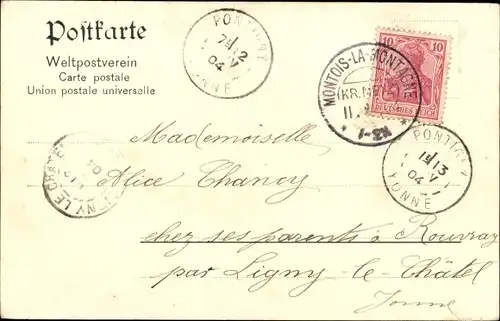 Postkarte
Weltpostverein
Carte postale
Union postale universelle
PONTIGNY
04
YONNE
MONTOIS-LA-MONTAGNE
10 10
DEUTSCHES REICH
PONTIGNY
04
YONNE
Mademoiselle
Alice Chancy
chez ses parents à Rouvray
par Ligny-le-Châtel
Yonne